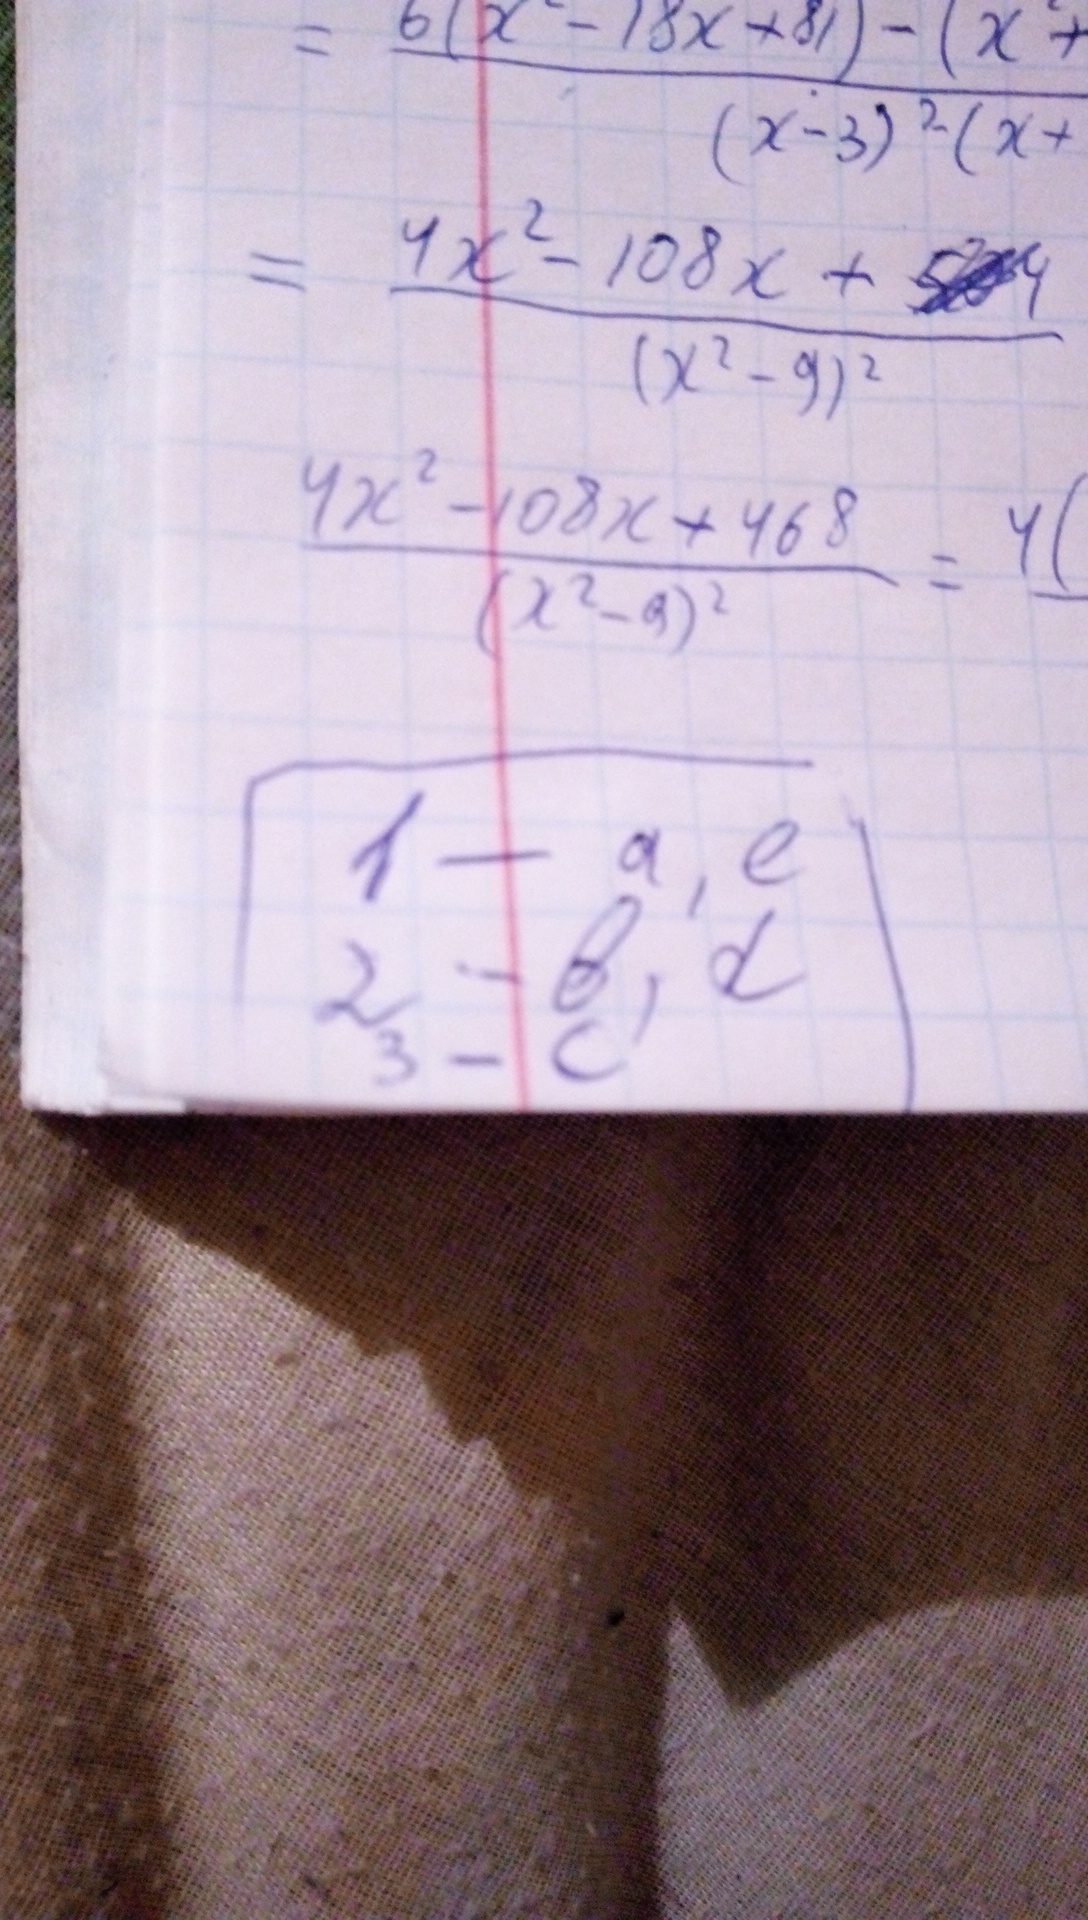 = 6(x² - 18x + 81) - (x² +
(x - 3)² · (x +
= 4x² - 108x +
(x² - 9)²
4x² - 108x + 468 = 4(
(x² - 9)²
1 — a, e
2 - b, d
3 - c